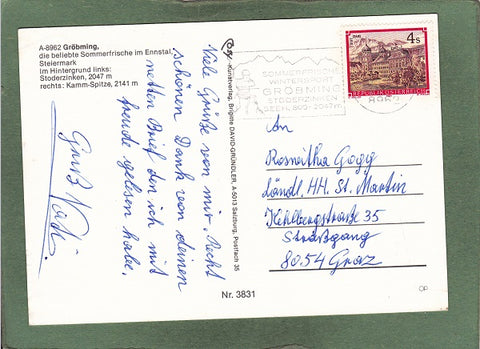 A-8962 Gröbming,
die beliebte Sommerfrische im Ennstal
Steiermark
Im Hintergrund links:
Stoderzinken, 2047 m
rechts: Kamm-Spitze, 2141 m
Viele Grüße von mir. Recht
schönen Dank von deinen
netten Brief den ich mit
freude gelesen habe.
Gruß
Kunstverlag, Brigitte DAVID-GRÜNDLER, A-5013 Salzburg, Postfach 35
Nr. 3831
SOMMERFRISCHE
WINTERSPORT
GRÖBMING
STODERZINKEN
4 S
REPUBLIK ÖSTERREICH
An
Rosweitha Gogg
Ländl. HH. St. Martin
Kehlbergstraße 35
Straßgang
8054 Graz